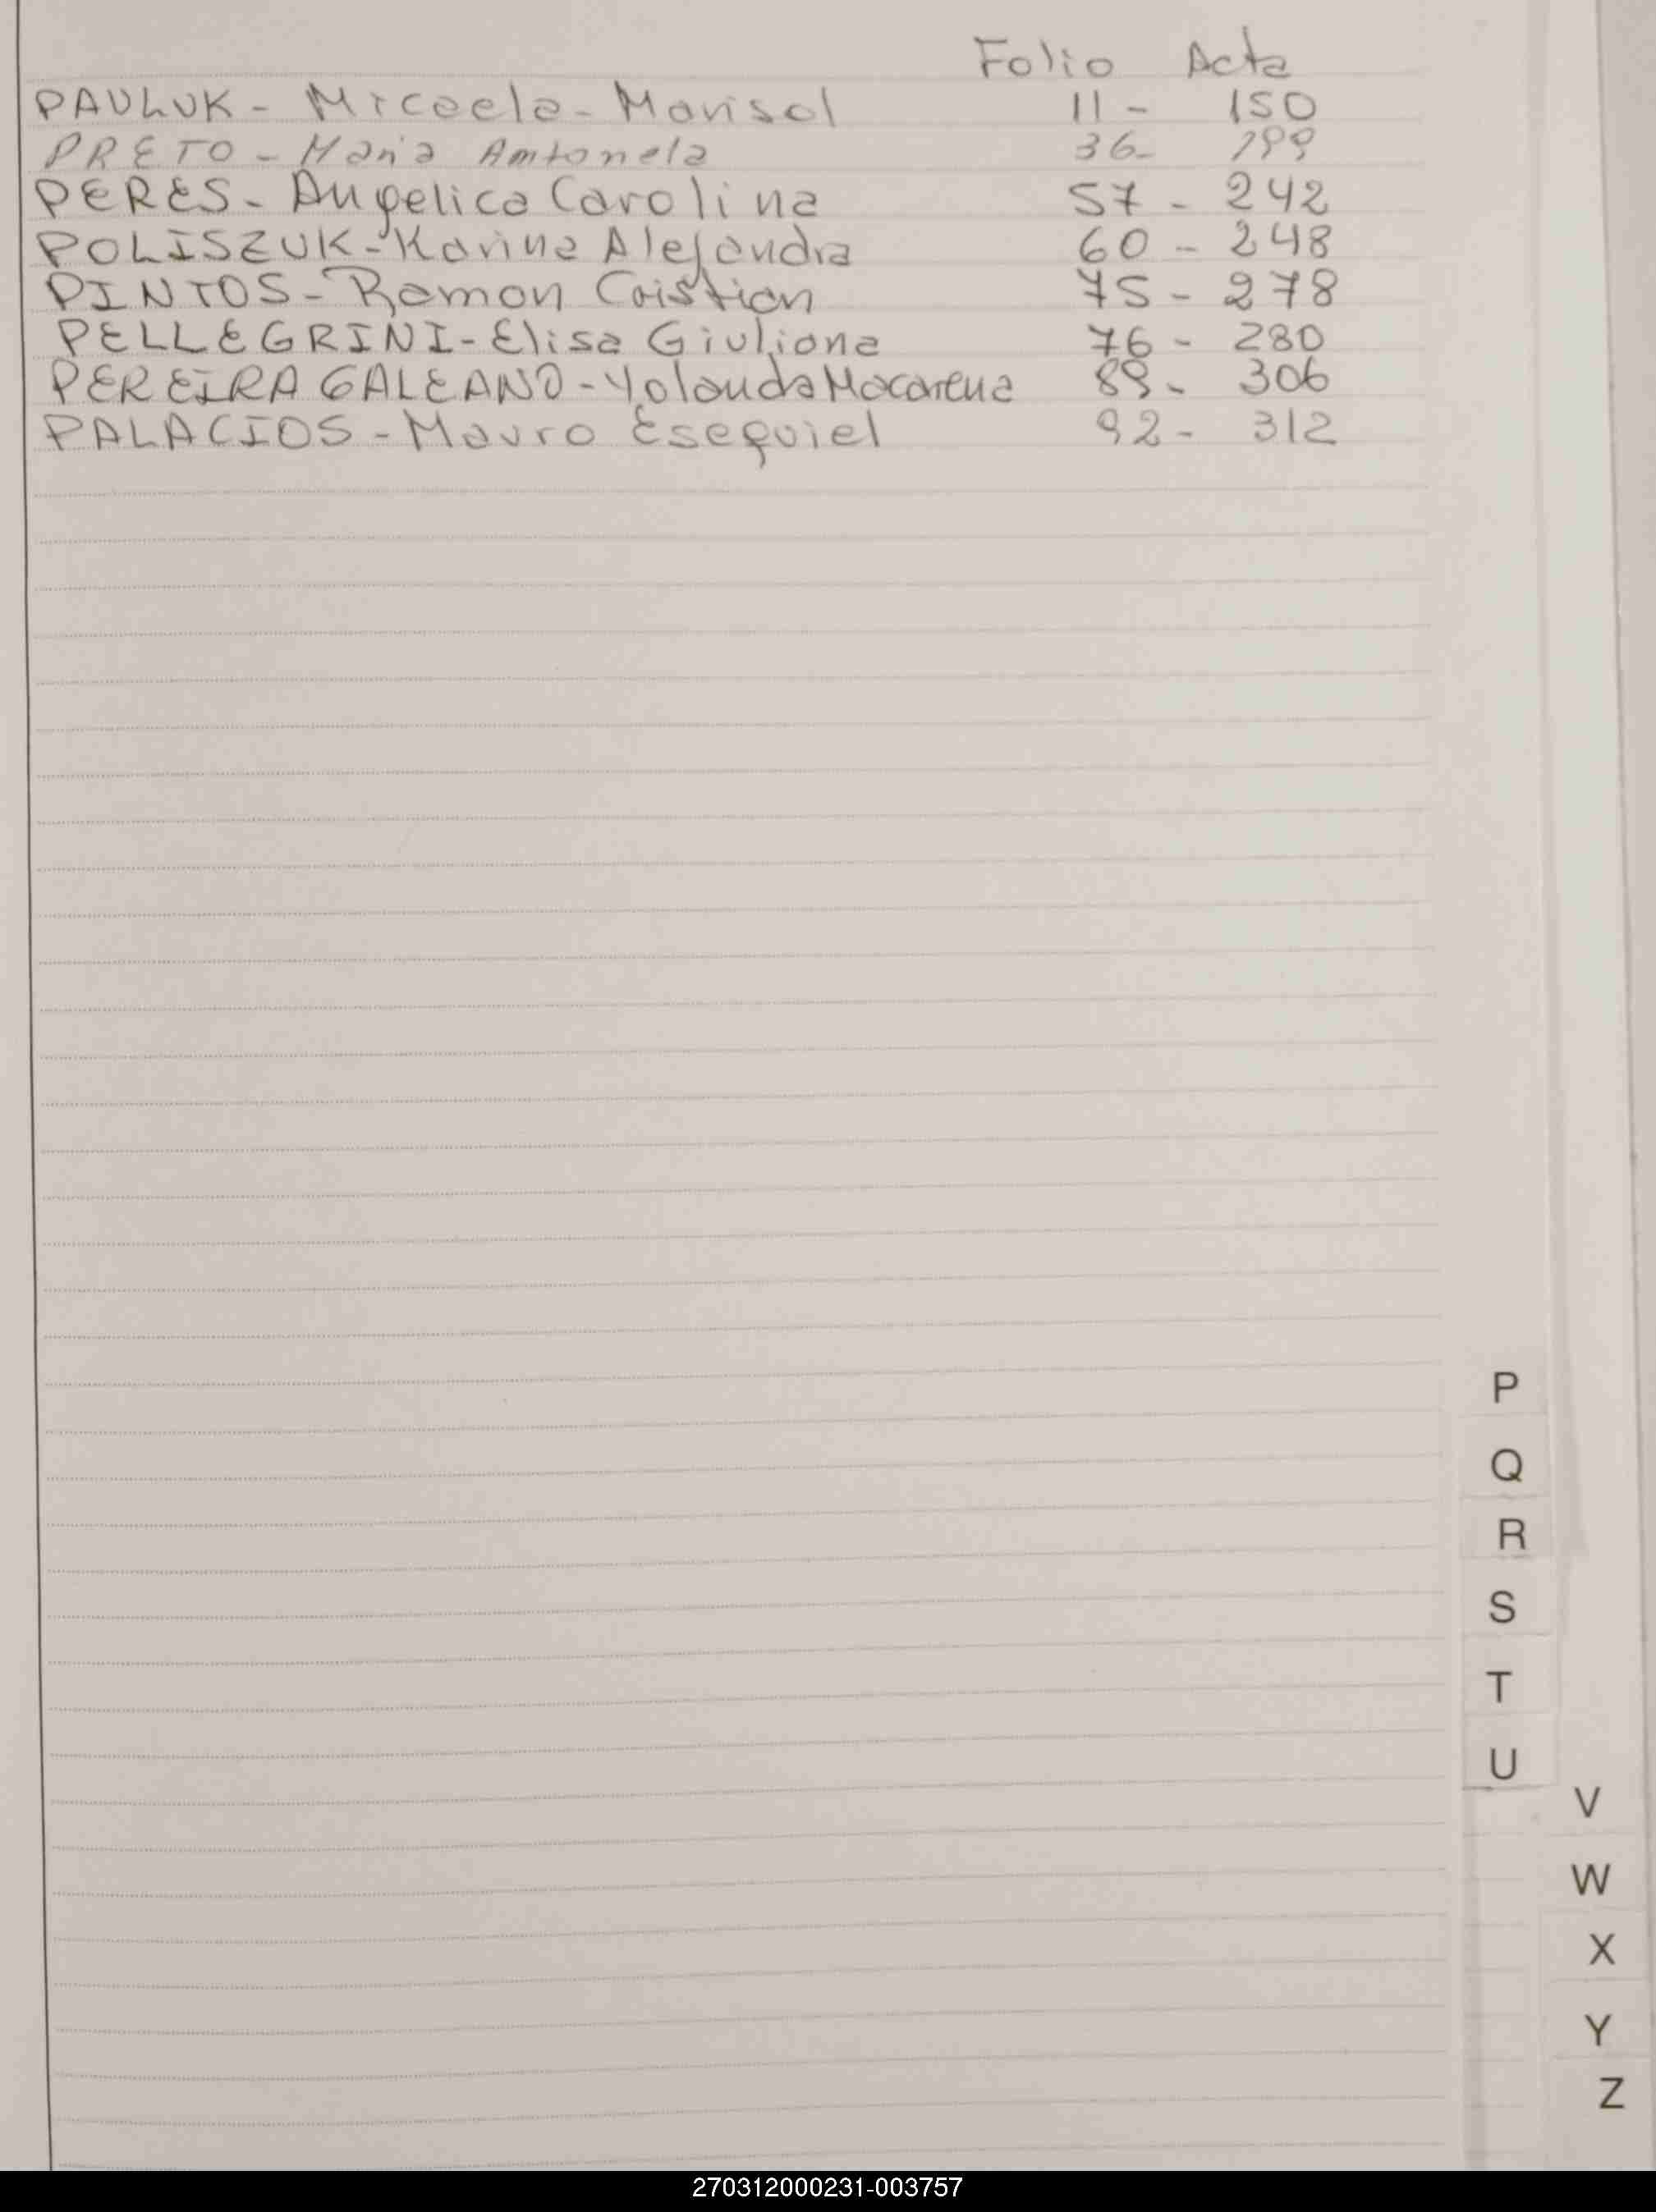 Folio Acta
PAULUK - Micaela - Marisol 11 - 150
PRETO - Maria Antonela 36- 199
PERES - Angelica Carolina 57 - 242
POLISZUK - Karina Alejandra 60 - 248
PINTOS - Ramon Cristian 75 - 278
PELLEGRINI - Elisa Giuliana 76 - 280
PEREIRA GALEANO - Yolanda Macarena 89 - 306
PALACIOS - Mauro Esequiel 92 - 312
P
Q
R
S
T
U
V
W
X
Y
Z
270312000231-003757